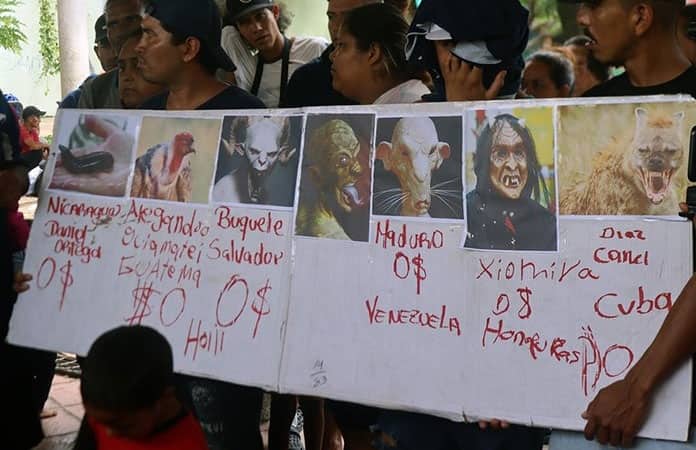 Nicaragua
Daniel
Ortega
0$
Alegandro
Guiamatei
Guatema
$0
Buquele
Salvador
0$
Haiii
Maduro
0$
Venezuela
Xiomira
0$
Honguras
Diaz
Canel
Cuba
$0